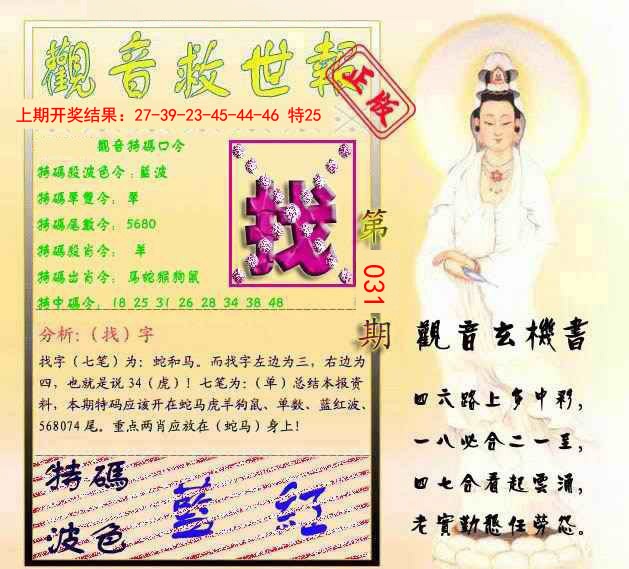 觀音救世報
正版
上期开奖结果：27-39-23-45-44-46 特25
觀音特碼口令
特碼段波色令：藍波
特碼單雙令： 單
特碼尾數令： 5680
特碼段肖令： 單
特碼出肖令： 馬蛇猴狗鼠
特中碼令： 18 25 31 26 28 34 38 48
找
第031期
分析:（找）字
找字（七笔）为: 蛇和马。而找字左边为三, 右边为
四, 也就是说 34（虎）! 七笔为:（单）总结本报资
料, 本期特码应该开在蛇马虎羊狗鼠、单数、蓝红波、
568074 尾。重点两肖应放在（蛇马）身上!
特碼
波色
藍 紅
觀音玄機書
四六路上多中彩,
一八必合二一至,
四七合看起雲涌,
老實勤懇任勞怨。